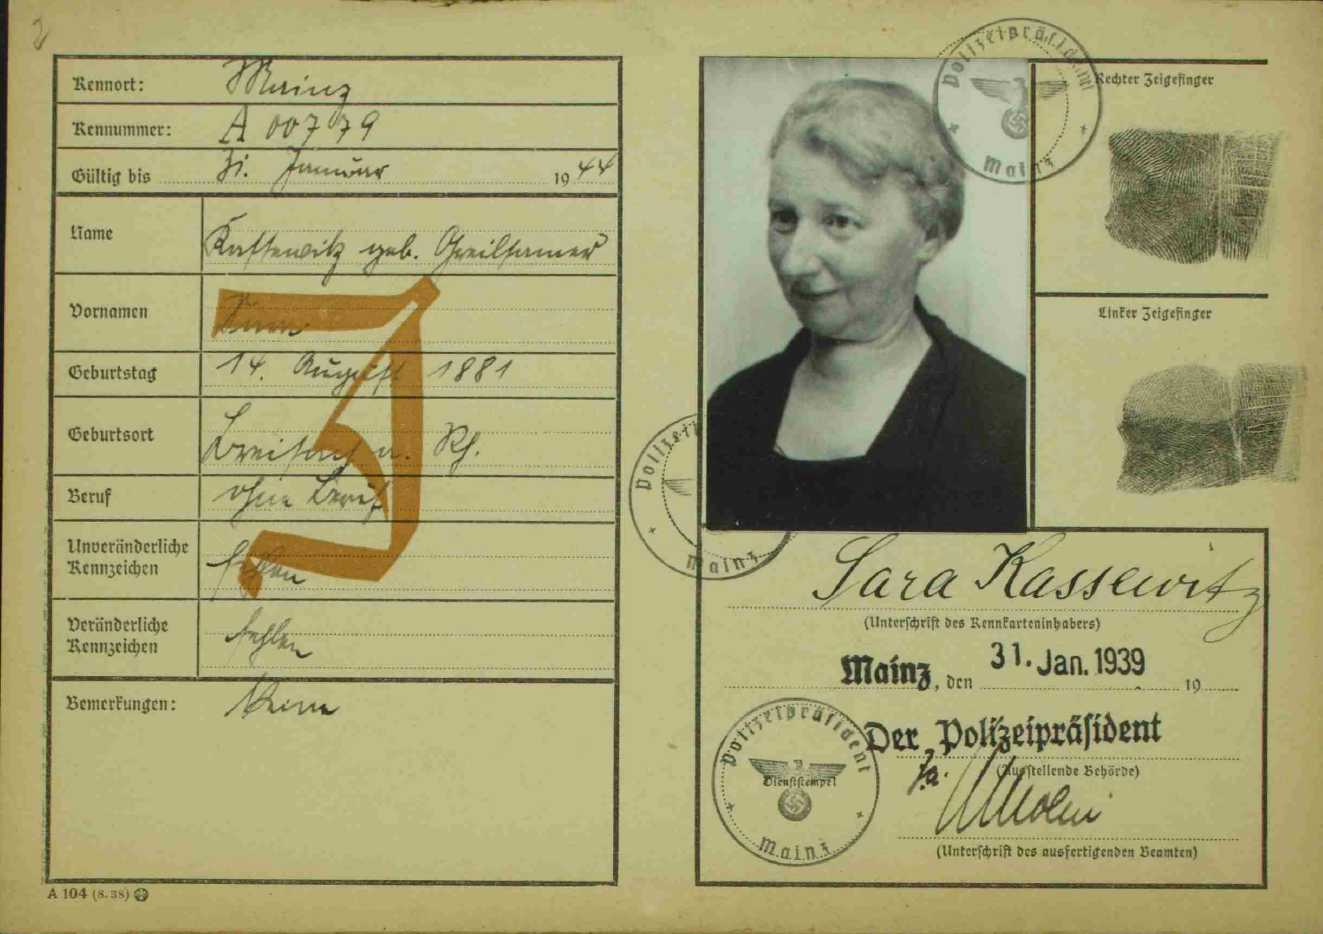 2
Kennort: Mainz
Kennummer: A 00779
Gültig bis 31. Januar 1944
Name Kassewitz geb. Greilsamer
Vornamen Sara
Geburtstag 14. August 1881
Geburtsort Breisach a. Rh.
Beruf ohne Beruf
Unveränderliche
Kennzeichen fehlen
Veränderliche
Kennzeichen fehlen
Bemerkungen: Keine
J
A 104 (8.38)
Polizeipräsident
Mainz
Rechter Zeigefinger
Linker Zeigefinger
Mainz
Sara Kassewitz
(Unterschrift des Kennkarteninhabers)
Mainz, den 31. Jan. 1939 19
Der Polizeipräsident
(Ausstellende Behörde)
J.A.
(Unterschrift des ausfertigenden Beamten)
Polizeipräsident
Dienststempel
Mainz